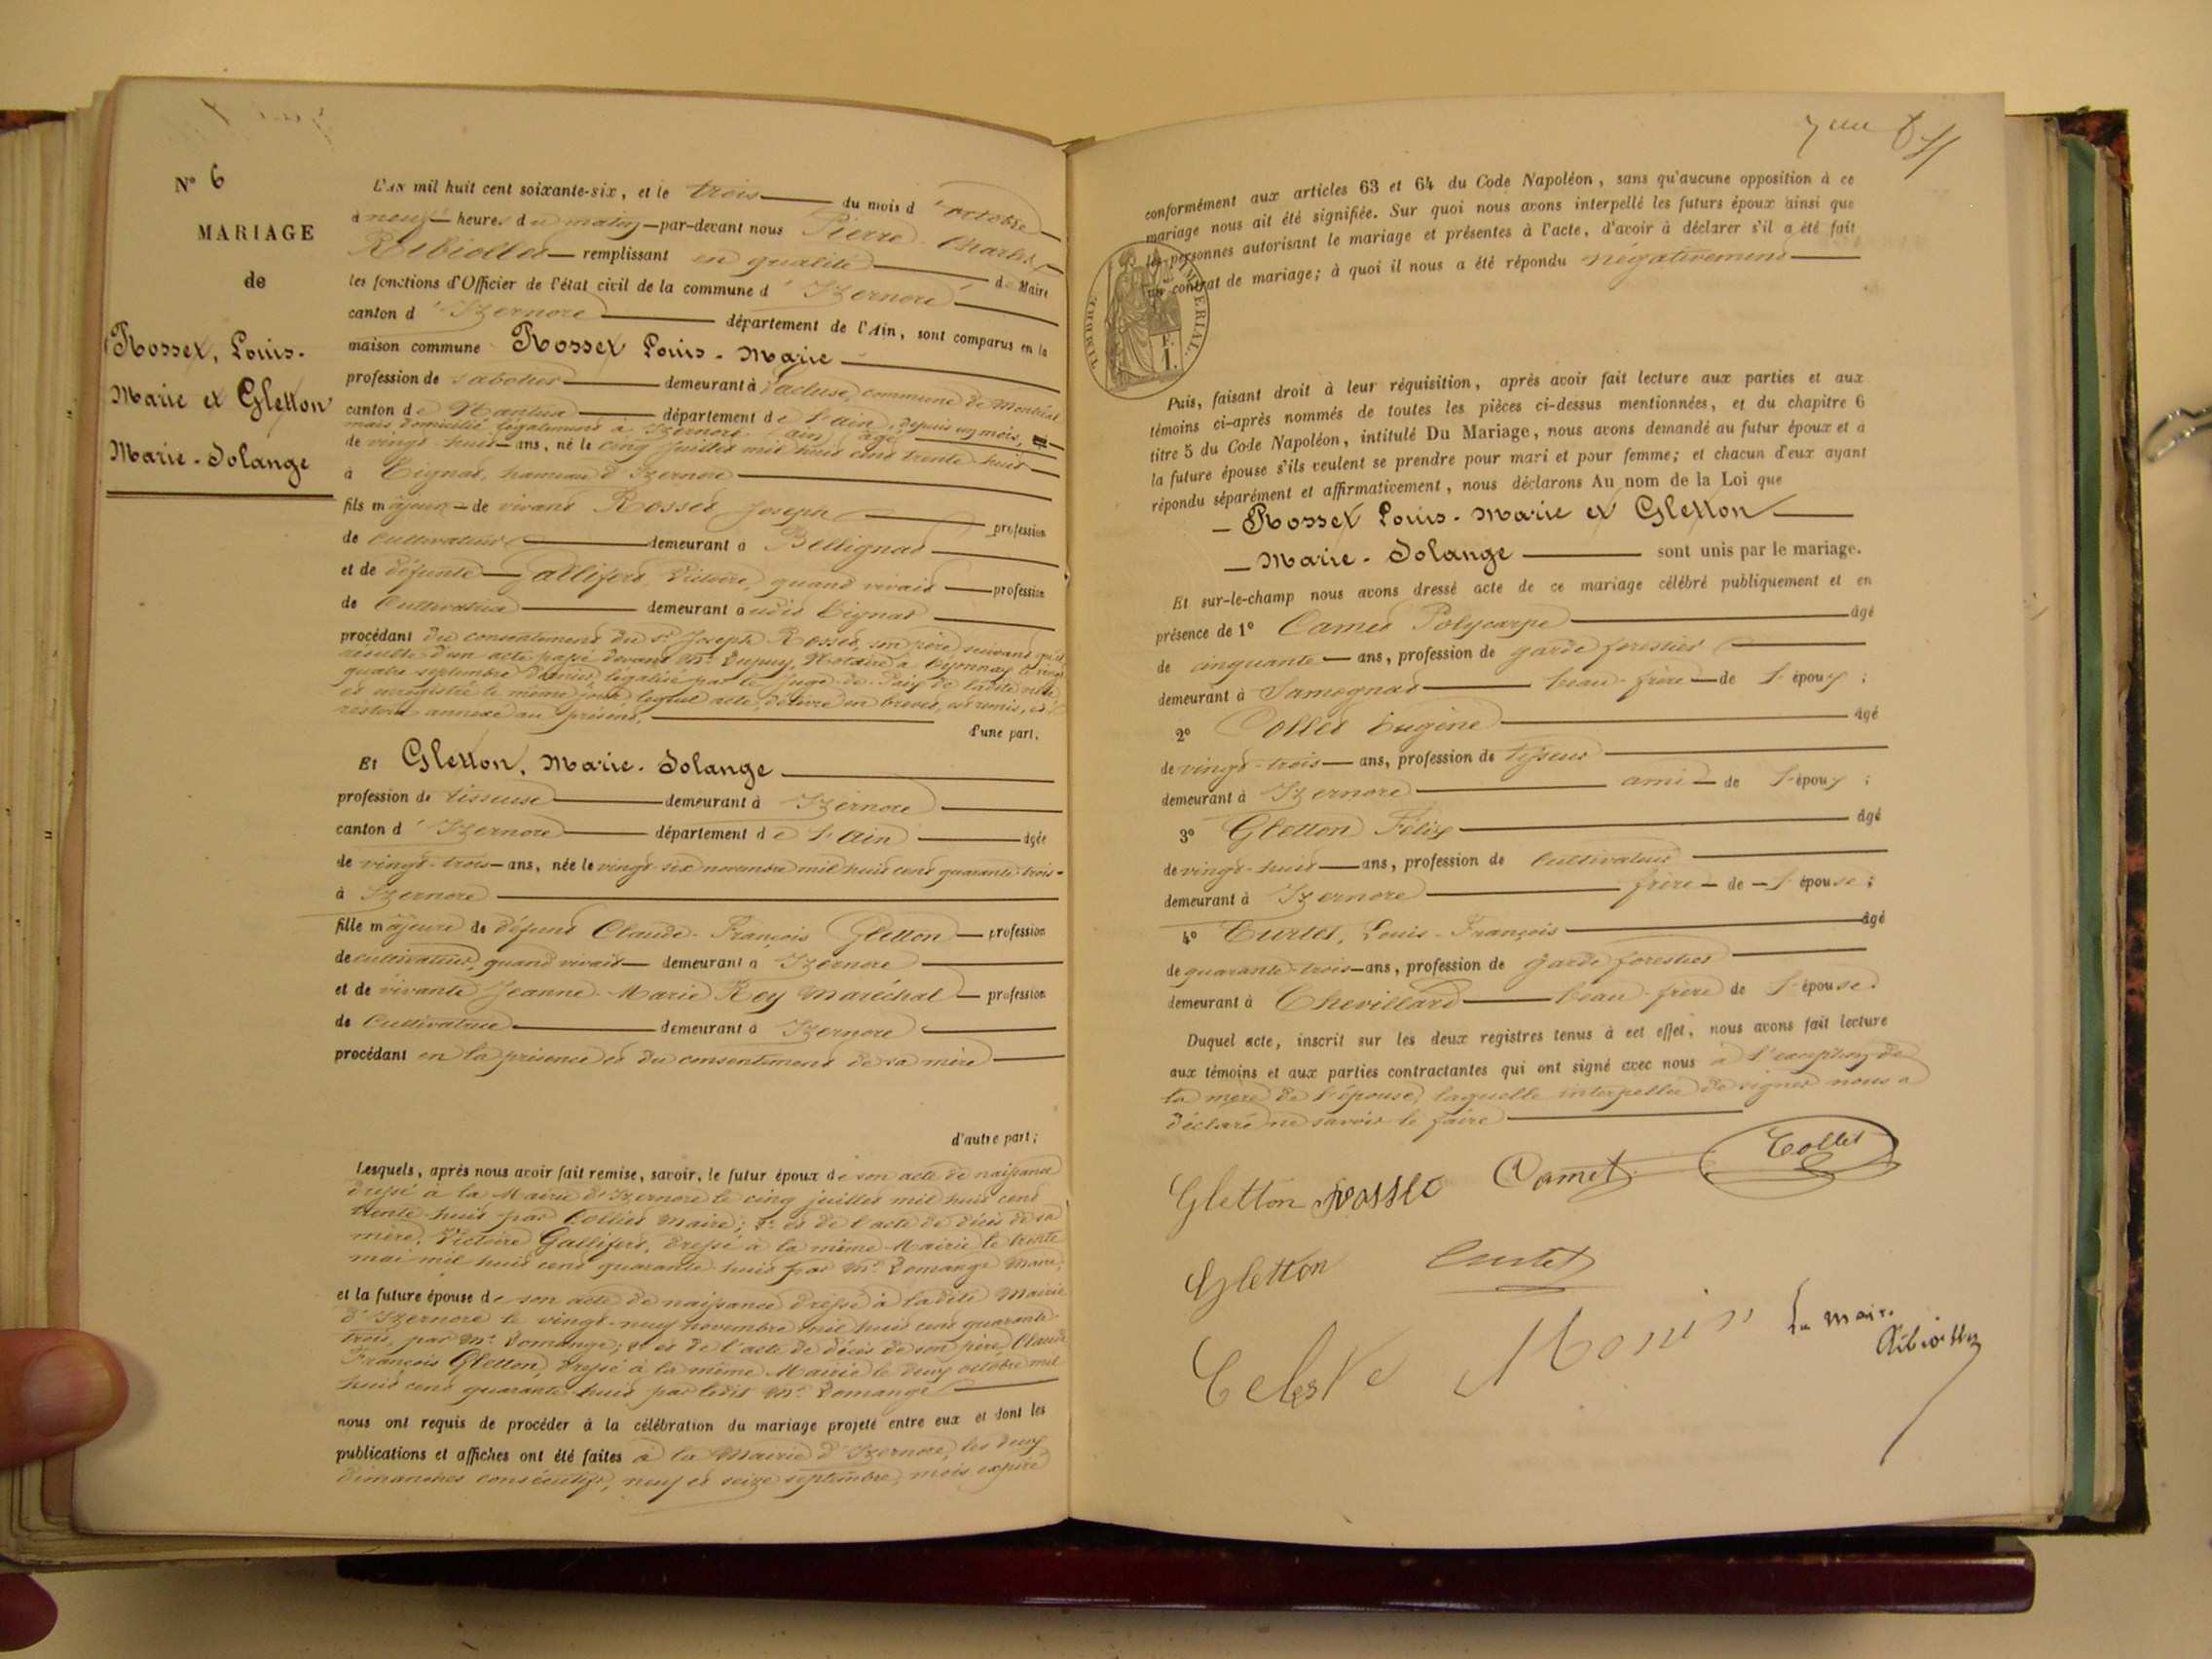 N° 6
MARIAGE
de
Rosset, Louis-
Marie et Gletton
Marie-Solange
L'an mil huit cent soixante-six, et le trois du mois d'octobre
à neuf heures du matin par-devant nous Pierre Charles
Ribiollet remplissant en qualité de Maire
les fonctions d'Officier de l'état civil de la commune d'Izernore
canton d'Izernore département de l'Ain, sont comparus en la
maison commune Rosset Louis-Marie
profession de sabotier demeurant à l'acluse, commune de Montréal
canton de Nantua département de l'ain, depuis un mois,
mais domicilié légalement à Izernore, ain, âgé
de vingt-huit ans, né le cinq juillet mil huit cent trente-huit
à Tignat, hameau d'Izernore
fils majeur de vivant Rosset Joseph profession
de cultivateur demeurant à Bellignat
et de défunte Gallifert, Victoire, quand vivait profession
de Cultivatrice demeurant audit Tignat
procédant du consentement du sr Joseph Rosset, son père, suivant qu'il
résulte d'un acte passé devant Me Dupuy, Notaire à Oyonnax le vingt
quatre septembre dernier, légalisé par le Juge de Paix de ladite ville
et enregistré le même jour, lequel acte, délivré en brevet, est remis, et
restera annexé au présent,
d'une part.
Et Gletton, Marie-Solange
profession de tisseuse demeurant à Izernore
canton d'Izernore département de l'Ain âgée
de vingt-trois ans, née le vingt-six novembre mil huit cent quarante-trois
à Izernore
fille majeure de défunt Claude-François Gletton profession
de cultivateur, quand vivait demeurant à Izernore
et de vivante Jeanne-Marie Rey Maréchal profession
de Cultivatrice demeurant à Izernore
procédant en la présence et du consentement de sa mère
d'autre part;
Lesquels, après nous avoir fait remise, savoir, le futur époux de son acte de naissance
dressé à la Mairie d'Izernore le cinq juillet mil huit cent
trente-huit par Collier Maire; 2° et de l'acte de décès de sa
mère, Victoire Gallifert, dressé à la même Mairie le trente
mai mil huit cent quarante-huit par Mr Domange Maire;
et la future épouse de son acte de naissance dressé à ladite Mairie
d'Izernore le vingt-neuf novembre mil huit cent quarante-
trois, par Mr Domange; 2° et de l'acte de décès de son père, Claude
François Gletton, dressé à la même Mairie le deux octobre mil
huit cent quarante-huit par ledit Mr Domange
nous ont requis de procéder à la célébration du mariage projeté entre eux et dont les
publications et affiches ont été faites à la Mairie d'Izernore, les deux
dimanches consécutifs, neuf et seize septembre, mois expiré
conformément aux articles 63 et 64 du Code Napoléon, sans qu'aucune opposition à ce
mariage nous ait été signifiée. Sur quoi nous avons interpellé les futurs époux ainsi que
les personnes autorisant le mariage et présentes à l'acte, d'avoir à déclarer s'il a été fait
un contrat de mariage; à quoi il nous a été répondu négativement
TIMBRE IMPÉRIAL.
1 F.
Puis, faisant droit à leur réquisition, après avoir fait lecture aux parties et aux
témoins ci-après nommés de toutes les pièces ci-dessus mentionnées, et du chapitre 6
titre 5 du Code Napoléon, intitulé Du Mariage, nous avons demandé au futur époux et à
la future épouse s'ils veulent se prendre pour mari et pour femme; et chacun d'eux ayant
répondu séparément et affirmativement, nous déclarons Au nom de la Loi que
Rosset Louis-Marie et Gletton
Marie-Solange sont unis par le mariage.
Et sur-le-champ nous avons dressé acte de ce mariage célébré publiquement et en
présence de 1° Camet Polycarpe âgé
de cinquante ans, profession de garde forestier
demeurant à Samognat beau-frère de l'époux;
2° Collet Eugène âgé
de vingt-trois ans, profession de tisseur
demeurant à Izernore ami de l'époux;
3° Gletton Félix âgé
de vingt-huit ans, profession de Cultivateur
demeurant à Izernore frère de l'épouse;
4° Curtet, Louis-François âgé
de quarante-trois ans, profession de garde forestier
demeurant à Chevillard beau-frère de l'épouse.
Duquel acte, inscrit sur les deux registres tenus à cet effet, nous avons fait lecture
aux témoins et aux parties contractantes qui ont signé avec nous à l'exception de
la mère de l'épouse, laquelle interpellée de signer nous a
déclaré ne savoir le faire
Gletton Rosset Camet Collet
Gletton Curtet
Celeste Monin Le Maire
Ribiollet